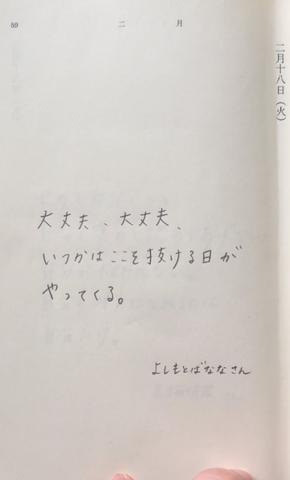 59
二月
二月十八日（火）
大丈夫、大丈夫、
いつかはここを抜ける日が
やってくる。
よしもとばななさん